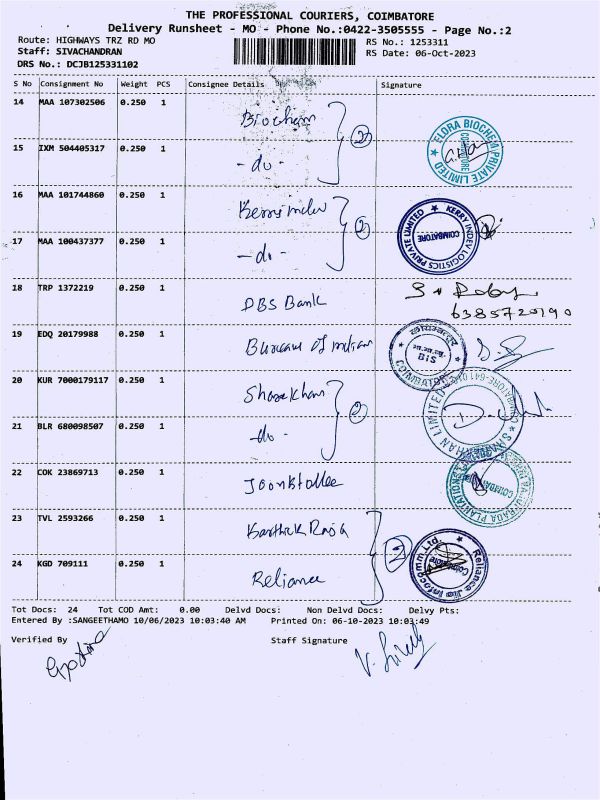 THE PROFESSIONAL COURIERS, COIMBATORE
Delivery Runsheet - MO - Phone No.:0422-3505555 - Page No.:2
Route: HIGHWAYS TRZ RD MO
RS No.: 1253311
Staff: SIVACHANDRAN
RS Date: 06-Oct-2023
DRS No.: DCJB125331102
S No Consignment No Weight PCS Consignee Details Signature
14 MAA 107302506 0.250 1 Biochem
2
FLORA BIOCHEM PRIVATE LIMITED COIMBATORE
15 IXM 504405317 0.250 1 -do-
16 MAA 101744860 0.250 1
2
KERRY INDEV LOGISTICS PRIVATE LIMITED COIMBATORE
17 MAA 100437377 0.250 1 -do-
18 TRP 1372219 0.250 1 DBS Bank
6385720190
19 EDQ 20179988 0.250 1 Bureau of
BIS
COIMBATORE
20 KUR 7000179117 0.250 1 Sharekhan
2
SHAREKHAN LIMITED
COIMBATORE-641
21 BLR 680098507 0.250 1 -do-
22 COK 23869713 0.250 1 Joonktollee
PLANTATIONS
23 TVL 2593266 0.250 1 Karthick Raja
24 KGD 709111 0.250 1 Reliance
Reliance Jio Infocomm Ltd.
Coimbatore
Tot Docs: 24 Tot COD Amt: 0.00 Delvd Docs: Non Delvd Docs: Delvy Pts:
Entered By :SANGEETHAMO 10/06/2023 10:03:40 AM Printed On: 06-10-2023 10:03:49
Verified By Staff Signature